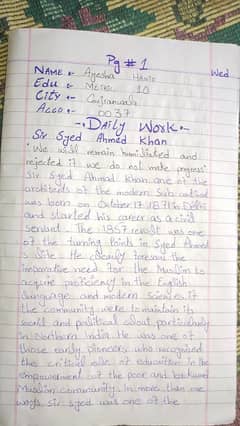 Pg # 1
Wed
NAME :- Ayesha Hanif
Edu :- Metric 10
City :- Gujranwala
Acco :- 0037
-: Daily Work :-
Sir Syed Ahmed Khan
"We will remain humiliated and
rejected if we do not make progress"
Sir Syed Ahmad Khan one of the
architects of the modern Sub
was born on October 17, 1817 in Delhi
and started his career as a civil
servant. The 1857 revolt was one
of the turning Points in Syed Ahmed
s life. He clearly foresaw the
imperative need for the Muslim to
acquire proficiency in the English
language and modern sciences, if
the community were to maintain its
social and political particularly
in Northern India. He was one of
those early pioneers who recognized
the critical role of education in the
empowerment of the poor and backward
Muslim community. In more than one
ways, Sir Syed was one of the